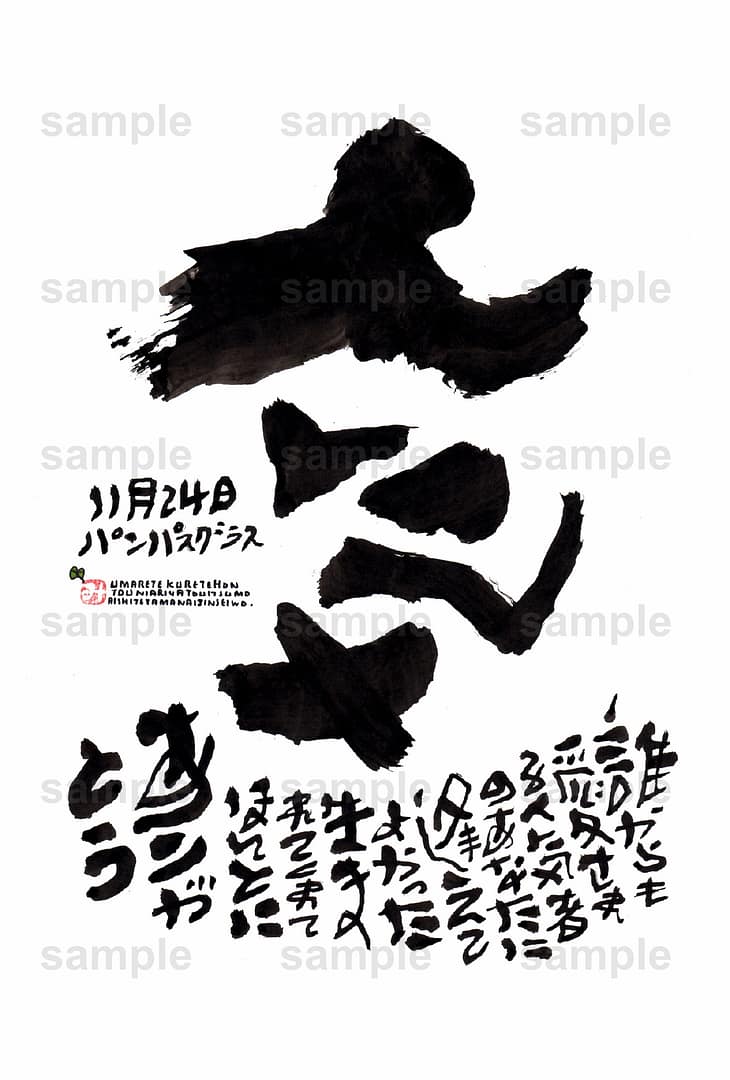 愛
11月24日
パンパスグラス
UMARETE KURETEHON
TOUNIARIGATOUITSUMO
AISHITEYAMANAIJINSEIWO.
誰からも
愛され
る人気者
のあなたに
逢えて
よかった
生ま
れてくれて
ほんとに
ありが
とう
sample sample sample
sample sample sample
sample sample sample
sample sample sample
sample sample sample
sample sample sample